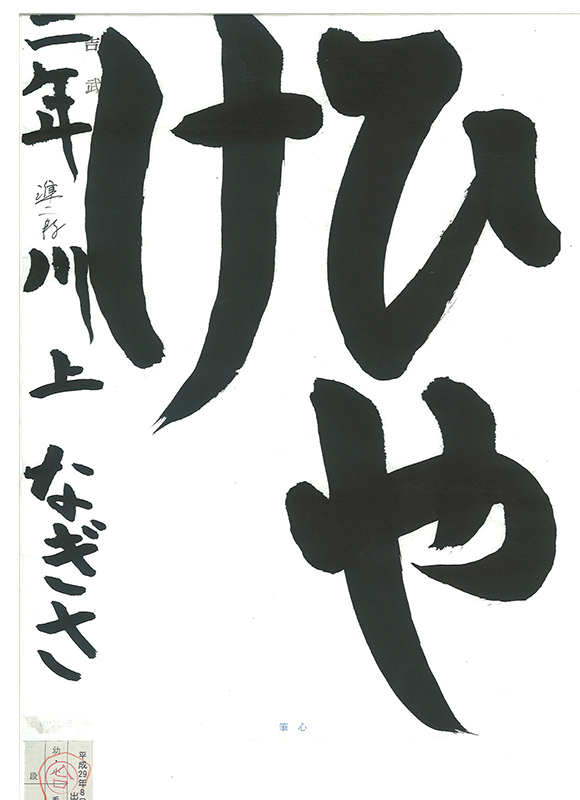 ひや
け
吉武
二年 準二段 川上 なぎさ
心筆
平成29年8
幼・小
段
出